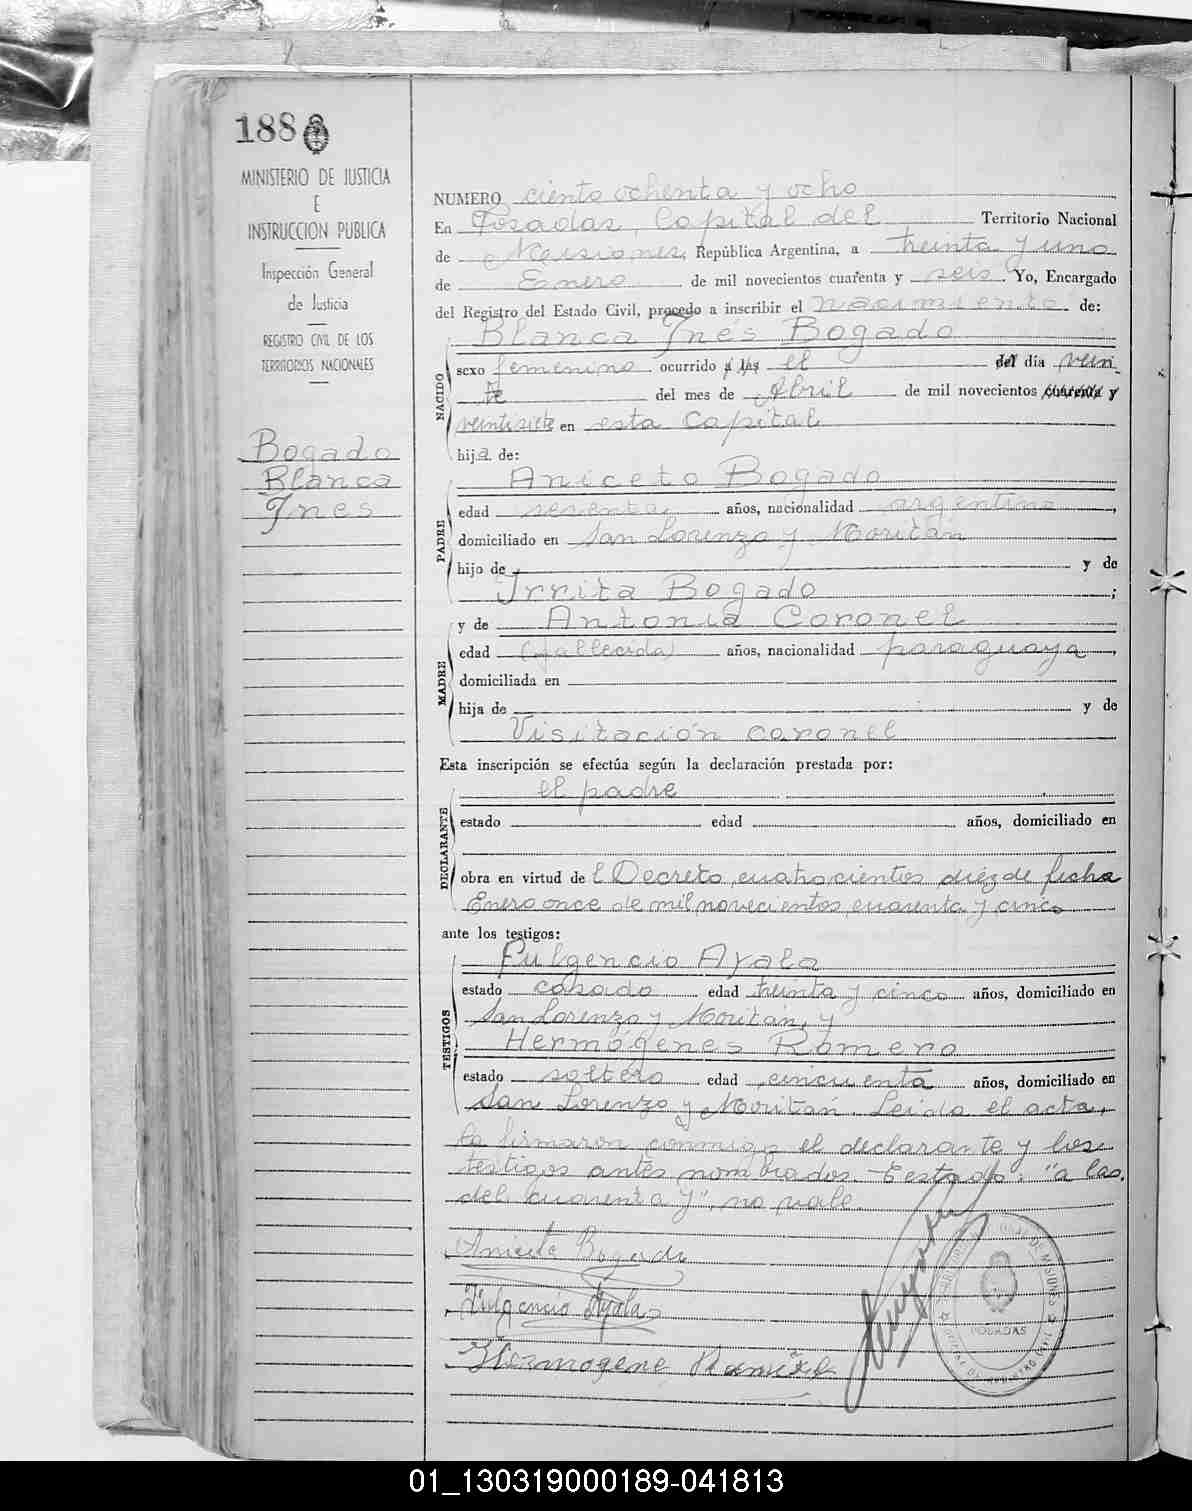 188
MINISTERIO DE JUSTICIA
E
INSTRUCCION PUBLICA
Inspección General
de Justicia
REGISTRO CIVIL DE LOS
TERRITORIOS NACIONALES
Bogado
Blanca
Ines
NUMERO ciento ochenta y ocho
En Posadas, Capital del Territorio Nacional
de Misiones, República Argentina, a treinta y uno
de Enero de mil novecientos cuarenta y seis Yo, Encargado
del Registro del Estado Civil, procedo a inscribir el nacimiento de:
NACIDO
Blanca Inés Bogado
sexo femenino ocurrido a las el del día vein
te del mes de Abril de mil novecientos cuarenta y
veintisiete en esta Capital
hija de:
PADRE
Aniceto Bogado
edad sesenta años, nacionalidad argentino,
domiciliado en San Lorenzo y Moritán
hijo de y de
Irrita Bogado;
MADRE
y de Antonia Coronel
edad (fallecida) años, nacionalidad paraguaya,
domiciliada en
hija de y de
Visitación Coronel
Esta inscripción se efectúa según la declaración prestada por:
DECLARANTE
el padre
estado edad años, domiciliado en
obra en virtud del Decreto cuatrocientos diez de fecha
Enero once de mil novecientos cuarenta y cinco
ante los testigos:
TESTIGOS
Fulgencio Ayala
estado casado edad treinta y cinco años, domiciliado en
San Lorenzo y Moritán, y
Hermógenes Romero
estado soltero edad cincuenta años, domiciliado en
San Lorenzo y Moritán. Leida el acta,
la firmaron conmigo el declarante y los
testigos antes nombrados. - Testado: "a las,
del cuarenta y", no vale.
Aniceto Bogado
Fulgencio Ayala
Hermogene
POSADAS
01_130319000189-041813